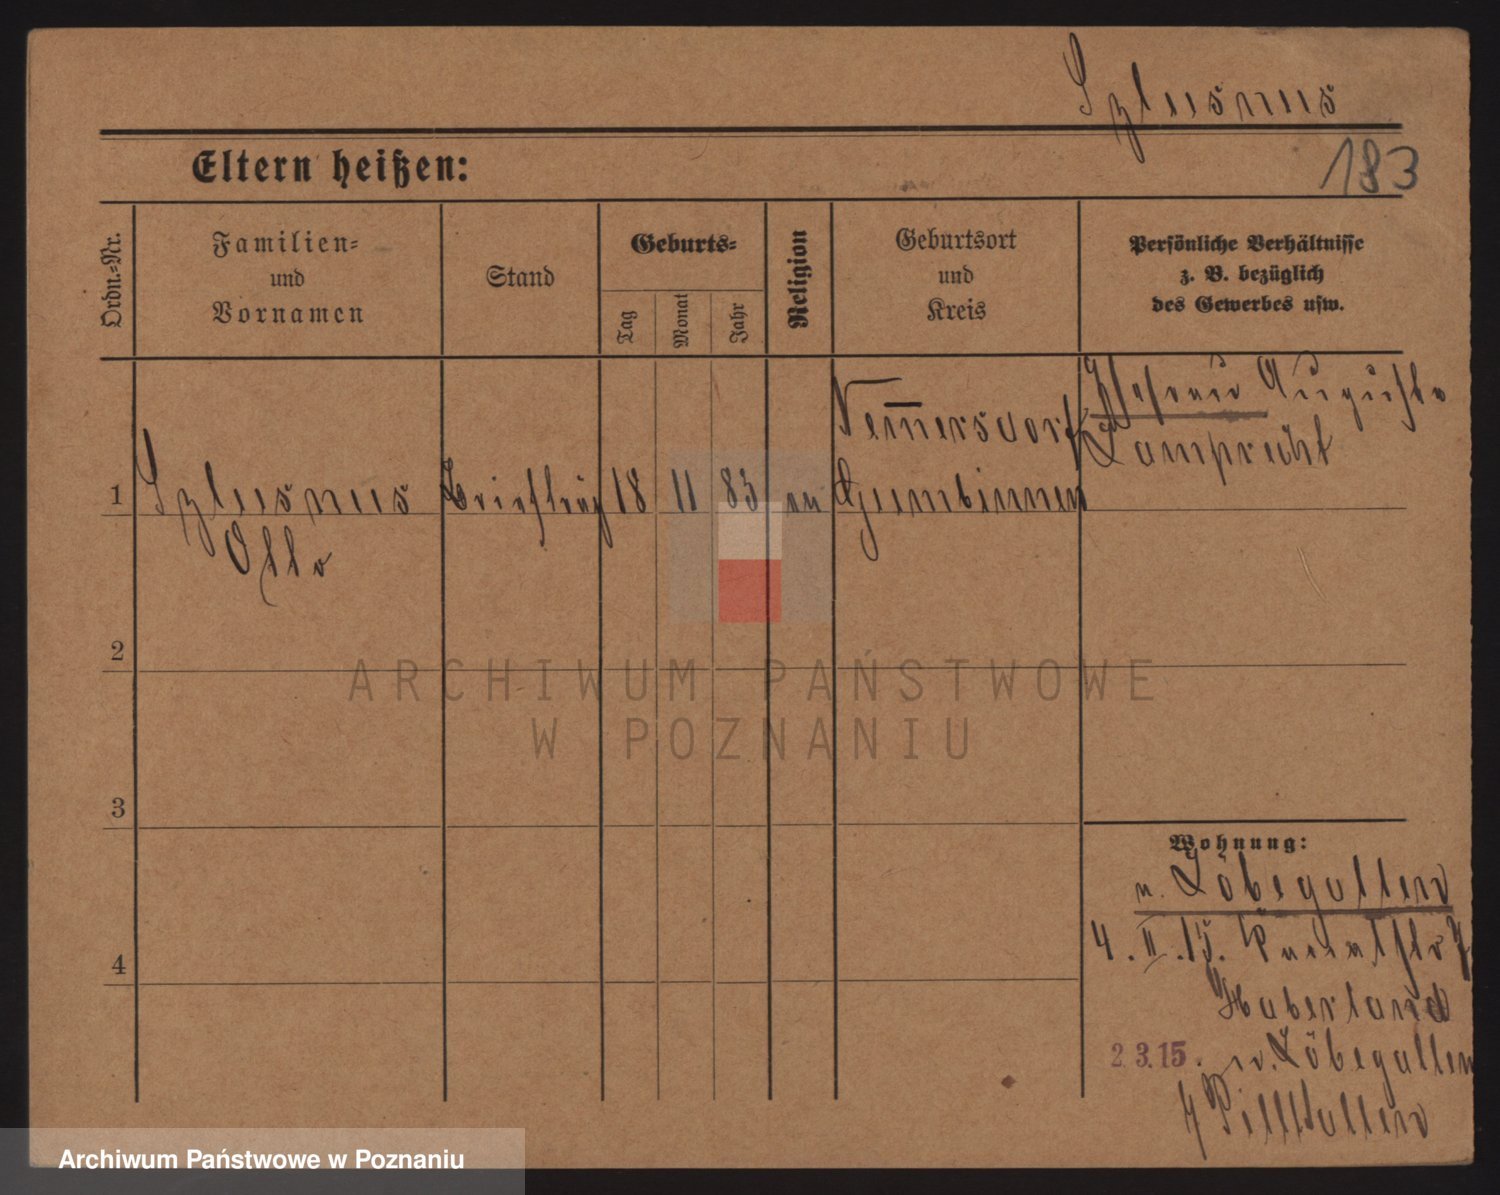 Szlusnus
183
Eltern heißen:
Ordn.-Nr.
Familien-
und
Vornamen
Stand
Geburts-
Tag
Monat
Jahr
Religion
Geburtsort
und
Kreis
Persönliche Verhältnisse
z. B. bezüglich
des Gewerbes usw.
1
Szlusnus
Otto
Briefträg
18
11
83
ev
Nem̄ersdorf
Gumbinnen
Ehefrau Auguste
Lamprecht
2
3
4
Wohnung:
n. Löbegallen
4. II. 15.
Haberland
2.3.15. n. Löbegallen
Pillkallen
ARCHIWUM PAŃSTWOWE
W POZNANIU
Archiwum Państwowe w Poznaniu